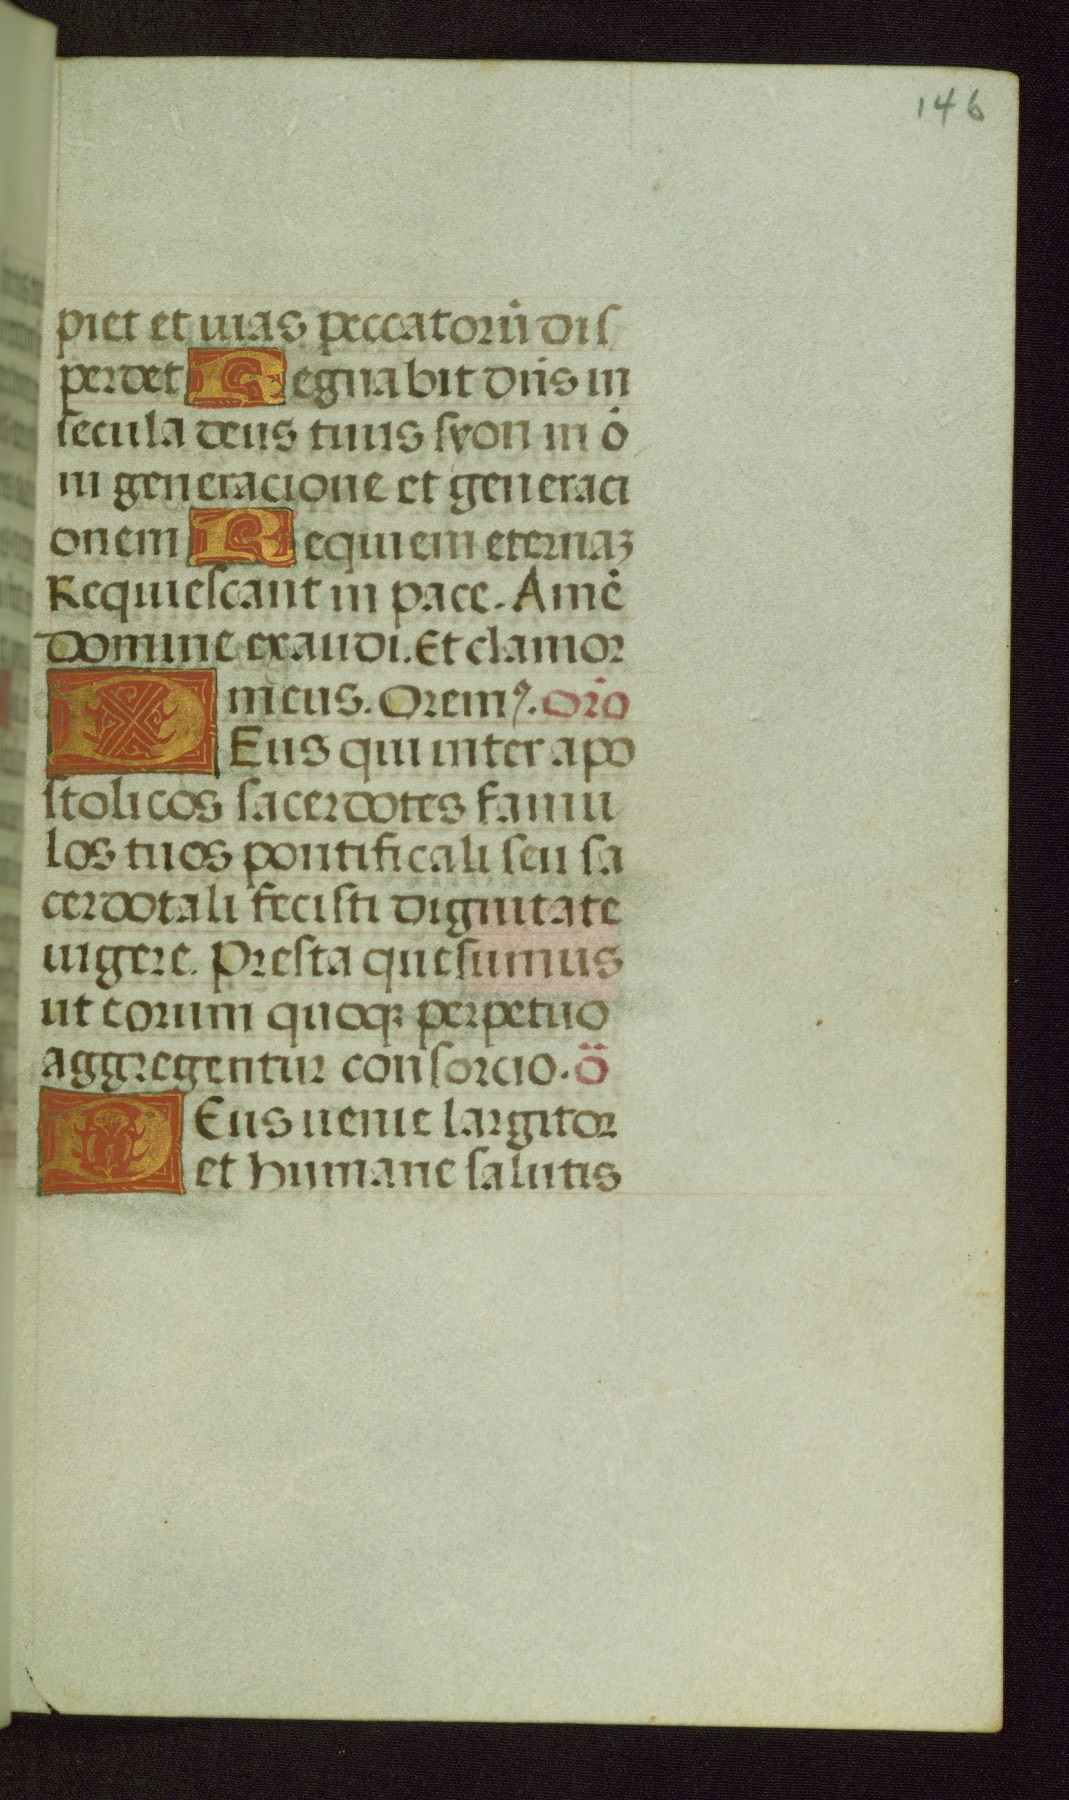 146
piet et uias peccatorū dis
perdet Regnabit dn̄s in
secula deus tuus syon in ō
ni generacione et generaci
onem Requiem eternaꝫ
Requiescant in pace. Amē
Domine exaudi. Et clamor
meus. Oremꝰ. or̄o
DEus qui inter apo
stolicos sacerdotes famu
los tuos pontificali seu sa
cerdotali fecisti dignitate
uigere. Presta quesumus
ut eorum quoqꝫ perpetuo
aggregentur consorcio. ō
DEus uenie largitor
et humane salutis